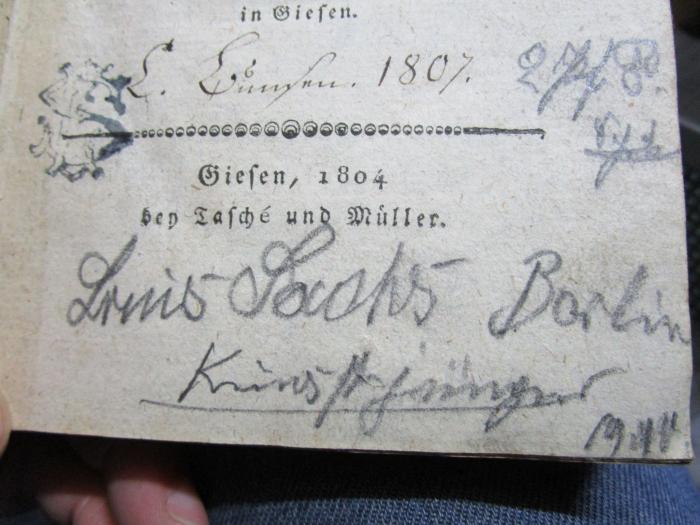 in Giesen.
C. Bunsen. 1807.
Giesen, 1804
bey Tasché und Müller.
Louis Sachs Berlin
Kunstjünger